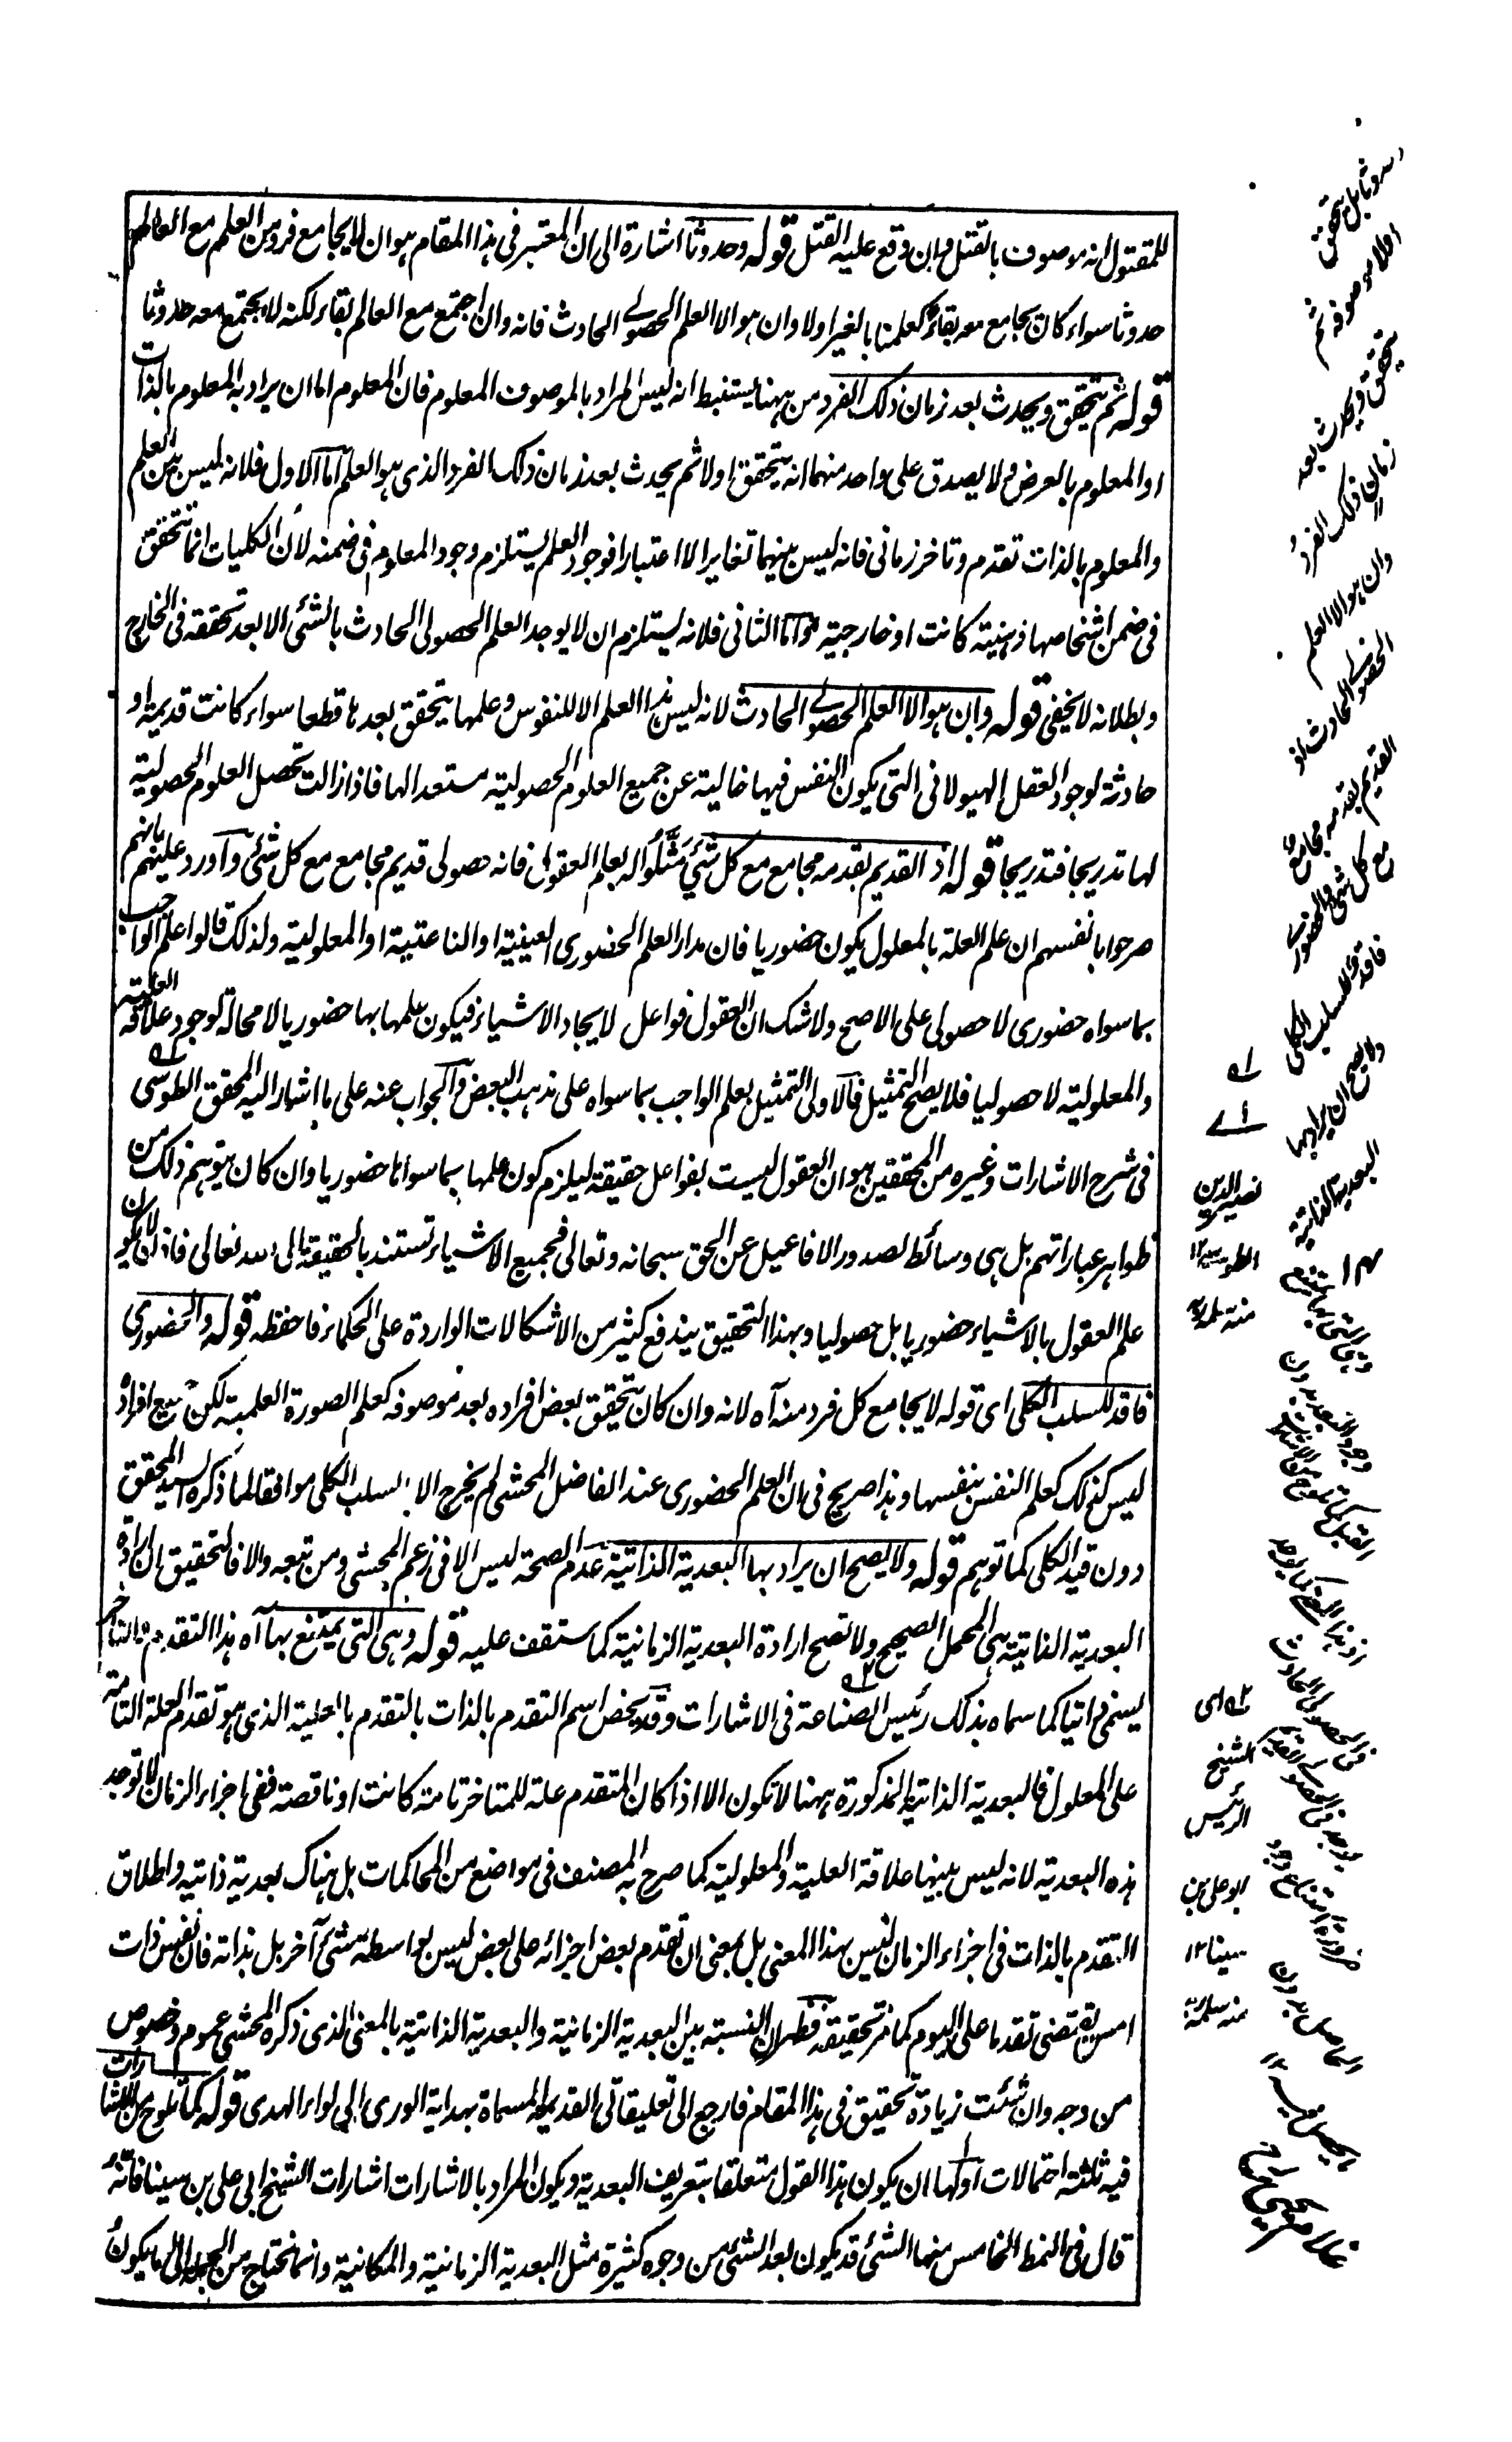 للمقتول انه موصوف بالقتل وان وقع عليه القتل قوله وحدوثا اشارة الى ان المعتبر فى هذا المقام هو ان لا يجامع فرد من العلم مع العالم
حدوثا سواء كان يجامع معه بقاء كعلمنا بالغير اولا وان هو الا العلم الحصولى الحادث فانه وان اجتمع مع العالم بقاء لكنه لا يجتمع معه حدوثا
قوله ثم يتحقق ويحدث بعد زمان ذلك الفرد من ههنا يستنبط انه ليس المراد بالموصوف المعلوم فان المعلوم اما ان يراد به المعلوم بالذات
او المعلوم بالعرض ولا يصدق على واحد منهما انه يتحقق اولا ثم يحدث بعد زمان ذلك الفرد الذى هو العلم اما الاول فلانه ليس بين العلم
والمعلوم بالذات تقدم وتاخر زمانى فانه ليس بينهما تغاير الا اعتبارا فوجود العلم يستلزم وجود المعلوم فى ضمنه لان الكليات انما تتحقق
فى ضمن اشخاصها ذهنية كانت او خارجية واما الثانى فلانه يستلزم ان لا يوجد العلم الحصولى الحادث بالشئ الا بعد تحققه فى الخارج
وبطلانه لا يخفى قوله وان هو الا العلم الحصولى الحادث لانه ليس هذا العلم الا للنفوس وعلمها يتحقق بعدها قطعا سواء كانت قديمة او
حادثة لوجود العقل الهيولانى التى يكون النفس فيها خالية عن جميع العلوم الحصولية مستعدا لها فاذا زالت تحصل العلوم الحصولية
لها تدريجا فتدريجا قوله اذ القديم بقدمه مجامع مع كل شئ مثلوا له بعلم العقول فانه حصولى قديم مجامع مع كل شئ واورد عليهم بانهم
صرحوا بانفسهم ان علم العلة بالمعلول يكون حضوريا فان مدار العلم الحضورى العينية او الناعتية او المعلولية ولذلك قالوا علم الواجب
بما سواه حضورى لا حصولى على الاصح ولا شك ان العقول فواعل لايجاد الاشياء فيكون علمها بها حضوريا لا محالة لوجود علاقة العلية
والمعلولية لا حصوليا فلا يصح التمثيل فالاولى التمثيل بعلم الواجب بما سواه على مذهب البعض والجواب عنه على ما اشار اليه المحقق الطوسى
فى شرح الاشارات وغيره من المحققين هو ان العقول ليست بفواعل حقيقة ليلزم كون علمها بما سواها حضوريا وان كان يتوهم ذلك من
ظواهر عباراتهم بل هى وسائط لصدور الافاعيل عن الحق سبحانه وتعالى فجميع الاشياء تستند بالحقيقة الى الله تعالى فاذن لا يكون
علم العقول بالاشياء حضوريا بل حصوليا وبهذا التحقيق يندفع كثير من الاشكالات الواردة على الحكماء فاحفظه قوله والحضورى
فاقد للسلب الكلى اى قوله لا يجامع كل فرد منه آه لانه وان كان يتحقق بعض افراده بعد موصوفه كعلم الصورة العلمية لكن جميع افراده
ليس كذلك كعلم النفس بنفسها وهذا صريح فى ان العلم الحضورى عند الفاضل المحشى لم يخرج الا بالسلب الكلى موافقا لما ذكره السيد المحقق
دون قيد الكلى كما توهم قوله ولا يصح ان يراد بها البعدية الذاتية عدم الصحة ليس الا فى زعم المحشى ومن تبعه والا فالتحقيق ان ارادة
البعدية الذاتية هى المحمل الصحيح ولا تصح ارادة البعدية الزمانية كما ستقف عليه قوله وهى التى يمتنع بها آه هذا التقدم والتاخر
يسمى ذاتيا كما سماه بذلك رئيس الصناعة فى الاشارات وقد يخص اسم التقدم بالذات بالتقدم بالعلية الذى هو تقدم العلة التامة
على المعلول فالبعدية الذاتية المذكورة ههنا لا تكون الا اذا كان المتقدم علة للمتاخر تامة كانت او ناقصة ففى اجزاء الزمان لا توجد
هذه البعدية لانه ليس بينها علاقة العلية والمعلولية كما صرح به المصنف فى مواضع من المحاكمات بل هناك بعدية ذاتية واطلاق
التقدم بالذات فى اجزاء الزمان ليس بهذا المعنى بل بمعنى ان تقدم بعض اجزائه على بعض ليس بواسطة شئ آخر بل بذاته فان نفس ذات
امس يقتضى تقدما على اليوم كما مر تحقيقه فظهر ان النسبة بين البعدية الزمانية والبعدية الذاتية بالمعنى الذى ذكره المحشى عموم وخصوص
من وجه وان شئت زيادة تحقيق فى هذا المقام فارجع الى تعليقاتى القديمة المسماة بهداية الورى الى لواء الهدى قوله كما يلوح من الاشارات
فيه ثلثة احتمالات اولها ان يكون هذا القول متعلقا بتعريف البعدية ويكون المراد بالاشارات اشارات الشيخ ابى على بن سينا فانه
قال فى النمط الخامس منها الشئ قد يكون بعد الشئ من وجوه كثيرة مثل البعدية الزمانية والمكانية وانما نحتاج من الجملة الى ما يكون
حدوثا بل يتحقق
اولا موصوفه ثم
يتحقق ويحدث بعد
زمان ذلك الفرد
وان هو الا العلم
الحصولى الحادث اذ
القديم بقدمه مجامع
مع كل شئ والحضورى
فاقد للسلب الكلى
ولا يصح ان يراد بها
البعدية الذاتية
وهى التى يمتنع
نصير الدين
الطوسى ١٢
منه سلمه
اى
الشيخ
الرئيس
ابو على بن
سينا ١٢
منه سلمه